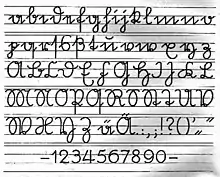 abcdefghijklmno
pqrſsßtuvwxyz
ABCDEFGHIJKL
MNOPQRSTUV
WXYZäÄ.,:;!?()'„“
-1234567890-